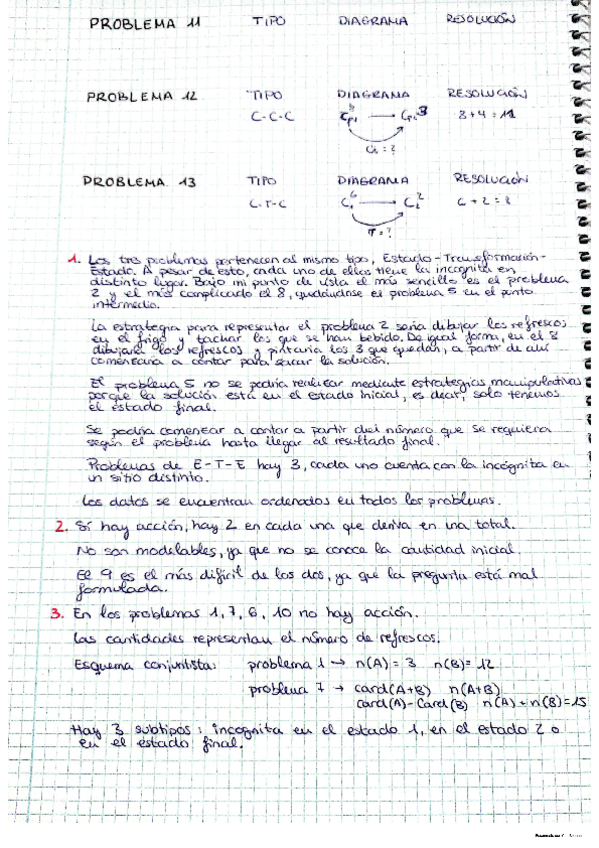 PROBLEMA 11 TIPO DIAGRAMA RESOLUCIÓN
PROBLEMA 12 TIPO DIAGRAMA RESOLUCIÓN
C-C-C 3
8+4=11
PROBLEMA 13 TIPO DIAGRAMA RESOLUCIÓN
C-T-C 6 2
T=?
1. Los tres problemas pertenecen al mismo tipo, Estado-Transformación-
Estado. A pesar de esto, cada uno de ellos tiene la incognita en
distinto lugar. Bajo mi punto de vista el más sencillo es el problema
2 y el más complicado el 8, quedándose el problema 5 en el punto
intermedio.
La estrategia para representar el problema 2 sería dibujar los refrescos
en el frigo y tachar los que se han bebido. De igual forma, en el 8
dibujaría los refrescos y pintaría los 3 que quedan, a partir de ahí
comenzaría a contar para sacar la solución.
El problema 5 no se podría realizar mediante estrategias manipulativas
porque la solución está en el estado inicial, es decir, solo tenemos
el estado final.
Se podría comenzar a contar a partir del número que se requiera
según el problema hasta llegar al resultado final.
Problemas de E-T-E hay 3, cada uno cuenta con la incógnita en
un sitio distinto.
Los datos se encuentran ordenados en todos los problemas.
2. Sí hay acción, hay 2 en cada una que deriva en una total.
No son modelables, ya que no se conoce la cantidad inicial.
El 9 es el más difícil de los dos, ya que la pregunta está mal
formulada.
3. En los problemas 1, 7, 6, 10 no hay acción.
Las cantidades representan el número de refrescos.
Esquema conjuntista: problema 1 → n(A) = 3 n(B) = 12
problema 7 → card(A+B) n(A+B)
card(A)-Card(B) n(A)+n(B)=15
Hay 3 subtipos: incognita en el estado 1, en el estado 2 o
en el estado final.